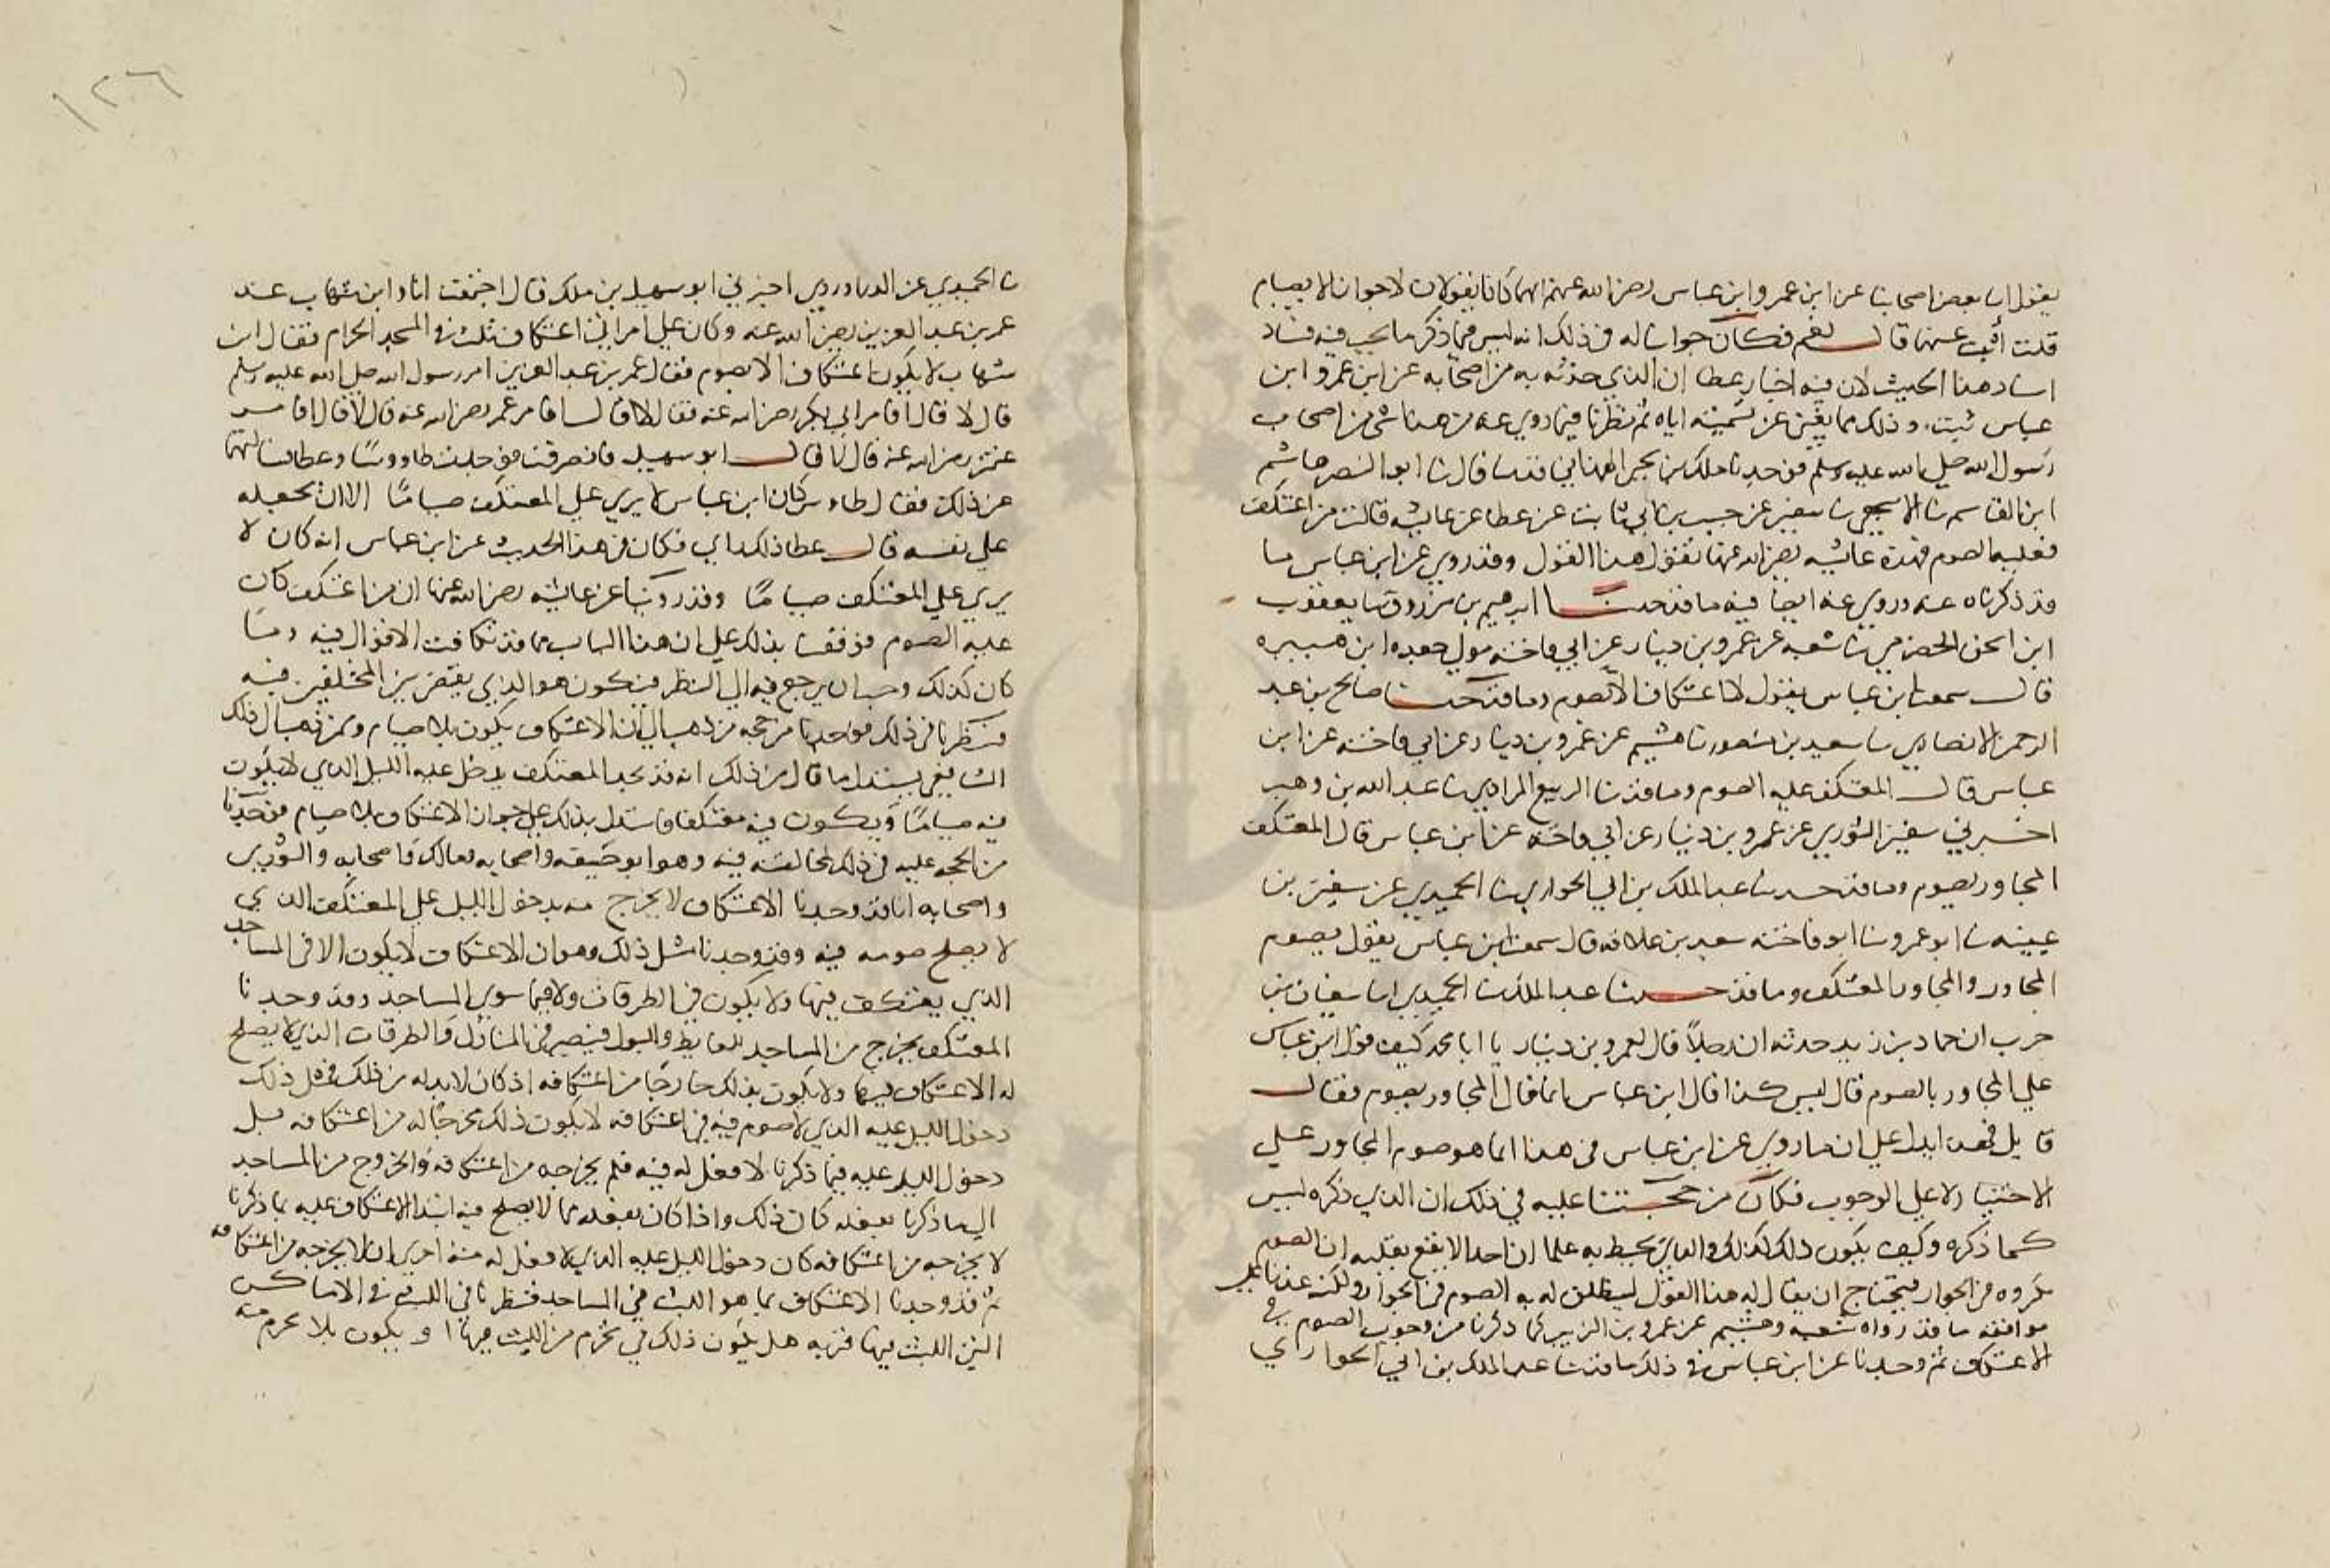 يقول انا بعض اصحابنا عن ابن عمر وابن عباس رضي الله عنهم انهما كانا يقولان لا جوار الا بصيام
قلت أثبت عنهما قال نعم فكان جوابنا له في ذلك انه ليس فيما ذكر ما يجب فيه فساد
اسناد هذا الحديث لان فيه اخبار عطا ان الذي حدثه به من اصحابه عن ابن عمر وابن
عباس ثبت وذلك مما يغني عن تسميته اياه ثم نظرنا فيما روي عنه من هذا شي من اصحاب
رسول الله صلى الله عليه وسلم فوجدنا ملك بن يحيى الهمداني قد نا قال نا ابو النضر هاشم
ابن القاسم نا الاشجعي نا سفين عن حبيب بن ابي ثابت عن عطا عن عايشه قالت من اعتكف
فعليه الصوم فهذه عايشه رضي الله عنها تقول هذا القول وقد روي عن ابن عباس ما
قد ذكرناه عنه وروي عنه ايضا فيه ما قد حدثنا ابرهيم بن مرزوق نا يعقوب
ابن اسحق الحضرمي نا شعبه عن عمرو بن دينار عن ابي فاخته مولى جعده ابن هبيره
قال سمعت ابن عباس يقول لا اعتكاف الا بصوم وما قد حدثنا صالح بن عبد
الرحمن الانصاري نا سعيد بن منصور نا هشيم عن عمرو بن دينار عن ابي فاخته عن ابن
عباس قال المعتكف عليه الصوم وما قد نا الربيع المرادي نا عبد الله بن وهب
اخبرني سفين الثوري عن عمرو بن دينار عن ابي فاخته عن ابن عباس قال المعتكف
المجاور يصوم وما قد حدثنا عبد الملك بن ابي الحواري نا الحميدي عن سفين بن
عيينه نا ابو عمرو نا ابو فاخته سعيد بن علاقه قال سمعت ابن عباس يقول يصوم
المجاور والمجاور المعتكف وما قد حدثنا عبد الملك نا الحميدي انا سفيان بن
حرب ان حماد بن زيد حدثه ان رجلاً قال لعمرو بن دينار يا ابا محمد كيف قول ابن عباس
على المجاور بالصوم قال ليس كذا قال ابن عباس انما قال المجاور يصوم فقال
قايل فهذا يدل على ان ما روي عن ابن عباس في هذا انما هو صوم المجاور على
الاختيار لا على الوجوب فكان من حجتنا عليه في ذلك ان الذي ذكره ليس
كما ذكره وكيف يكون ذلك كذلك والناس يحيط به علما ان احدا لا يقع بقلبه ان الصوم
مكروه في الجوار فيحتاج ان يقال له هذا القول ليطلق له به الصوم في الجوار ولكنه عندنا على
موافقه ما قد رواه شعبه وهشيم عن عمرو بن الزبير كما ذكرنا من وجوب الصوم في
الاعتكاف ثم وجدنا عن ابن عباس في ذلك ما قد نا عبد الملك بن ابي الحواري
نا الحميدي عن الدراوردي اخبرني ابو سهيل بن ملك قال اجتمعت انا وابن شهاب عند
عمر بن عبد العزيز رضي الله عنه وكان على امراتي اعتكاف ثلث في المسجد الحرام فقال ابن
شهاب لا يكون اعتكاف الا بصوم فقال عمر بن عبد العزيز امر رسول الله صلى الله عليه وسلم
قال لا قال افامر ابي بكر رضي الله عنه فقال لا قال افامر عمر رضي الله عنه قال لا قال افامر
عثمن رضي الله عنه قال لا قال ابو سهيل فانصرفت فوجدت طاووسًا وعطا فسالتهما
عن ذلك فقال طاوس كان ابن عباس لا يرى على المعتكف صيامًا الا ان يجعله
على نفسه قال عطا ذلك رايي فكان في هذا الحديث عن ابن عباس انه كان لا
يرى على المعتكف صيامًا وقد روينا عن عايشه رضي الله عنها ان من اعتكف كان
عليه الصوم فوقفنا بذلك على ان هذا الباب مما قد تكافت الاقوال فيه وما
كان كذلك وجب ان يرجع فيه الى النظر فيكون هو الذي يقضي بين المختلفين فيه
فنظرنا في ذلك فوجدنا من حجه من ذهب الى ان الاعتكاف يكون بلا صيام وممن ذهب الى ذلك
الشافعي يستدل ما قال من ذلك انه قد نجد المعتكف يدخل عليه الليل الذي لا يكون
فيه صيامًا ويكون فيه معتكفا فاستدل بذلك على جواز الاعتكاف بلا صيام فوجدنا
من الحجه عليه في ذلك لمخالفته فيه وهو ابو حنيفه واصحابه ومالك واصحابه والثوري
واصحابه انا قد وجدنا الاعتكاف لا يخرج منه بدخول الليل على المعتكف الذي
لا يصلح صومه فيه وقد وجدنا مثل ذلك وهو ان الاعتكاف لا يكون الا في المساجد
الذي يعتكف فيها ولا يكون في الطرقات ولا فيما سوى المساجد وقد وجدنا
المعتكف يخرج من المساجد للغايط والبول فيصير في المنازل والطرقات الذي لا يصلح
له الاعتكاف فيها ولا يكون بذلك خارجًا من اعتكافه اذ كان لا بد له من ذلك فمثل ذلك
دخول الليل عليه الذي لا صوم فيه في اعتكافه لا يكون ذلك مخرجًا له من اعتكافه مثل
دخول الليل عليه فيما ذكرنا لا فعل له فيه فلم يخرجه من اعتكافه والخروج من المساجد
الى ما ذكرنا بفعله كان ذلك واذا كان بفعله مما لا يصلح فيه ابتدا الاعتكاف عليه بما ذكرنا
لا يخرجه من اعتكافه كان دخول الليل عليه الذي لا فعل له فيه احرى ان لا يخرجه من اعتكافه
ثم قد وجدنا الاعتكاف بما هو اللبث في المساجد فنظرنا في اللبث في الاماكن
التي اللبث فيها قربه هل يكون ذلك في محرم من اللبث فيها او يكون بلا محرم منه
١٢٦